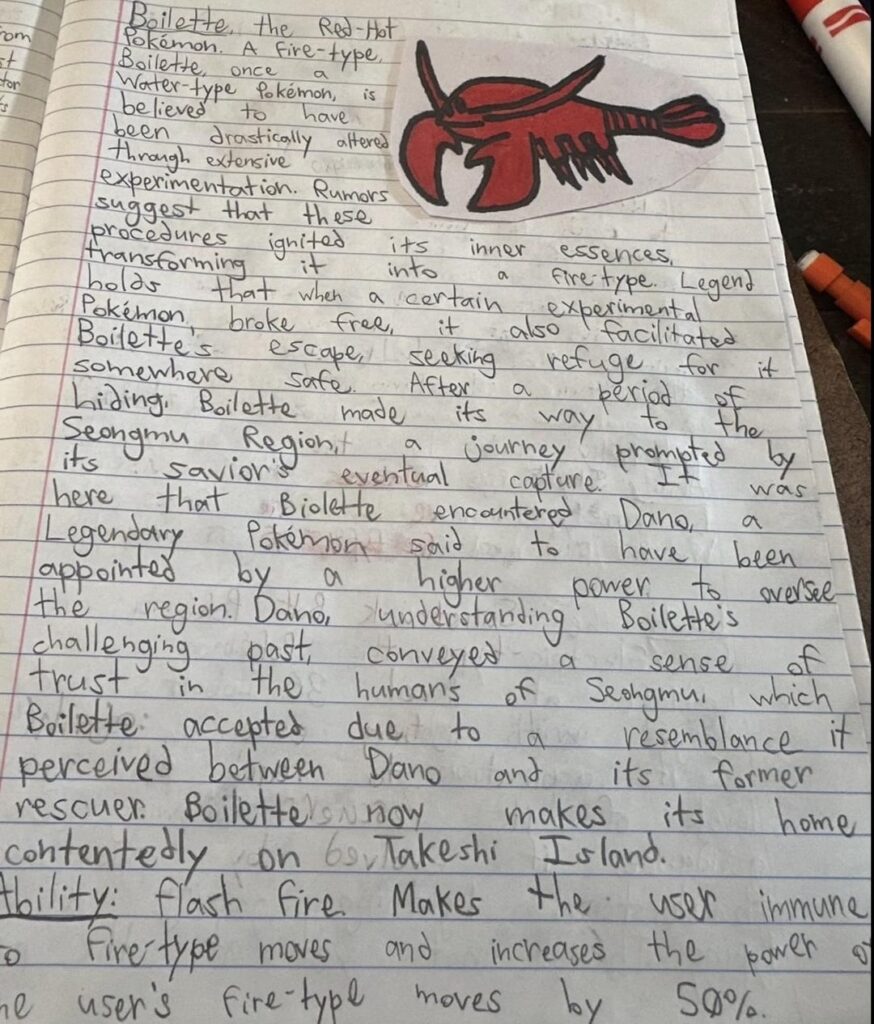 rom
st
tor
s
Boilette, the Red-Hot
Pokémon. A fire-type,
Boilette, once a
Water-type Pokémon, is
believed to have
been drastically altered
through extensive
experimentation. Rumors
suggest that these
procedures ignited its inner essences,
transforming it into a fire-type. Legend
holds that when a certain experimental
Pokémon, broke free, it also facilitated
Boilette's escape, seeking refuge for it
somewhere safe. After a period of
hiding, Boilette made its way to the
Seongmu Region, a journey prompted by
its savior's eventual capture. It was
here that Biolette encountered Dano, a
Legendary Pokémon said to have been
appointed by a higher power to oversee
the region. Dano, understanding Boilette's
challenging past, conveyed a sense of
trust in the humans of Seongmu, which
Boilette accepted due to a resemblance it
perceived between Dano and its former
rescuer. Boilette now makes its home
contentedly on Takeshi Island.
Ability: flash fire. Makes the user immune
to fire-type moves and increases the power o
he user's fire-type moves by 50%.